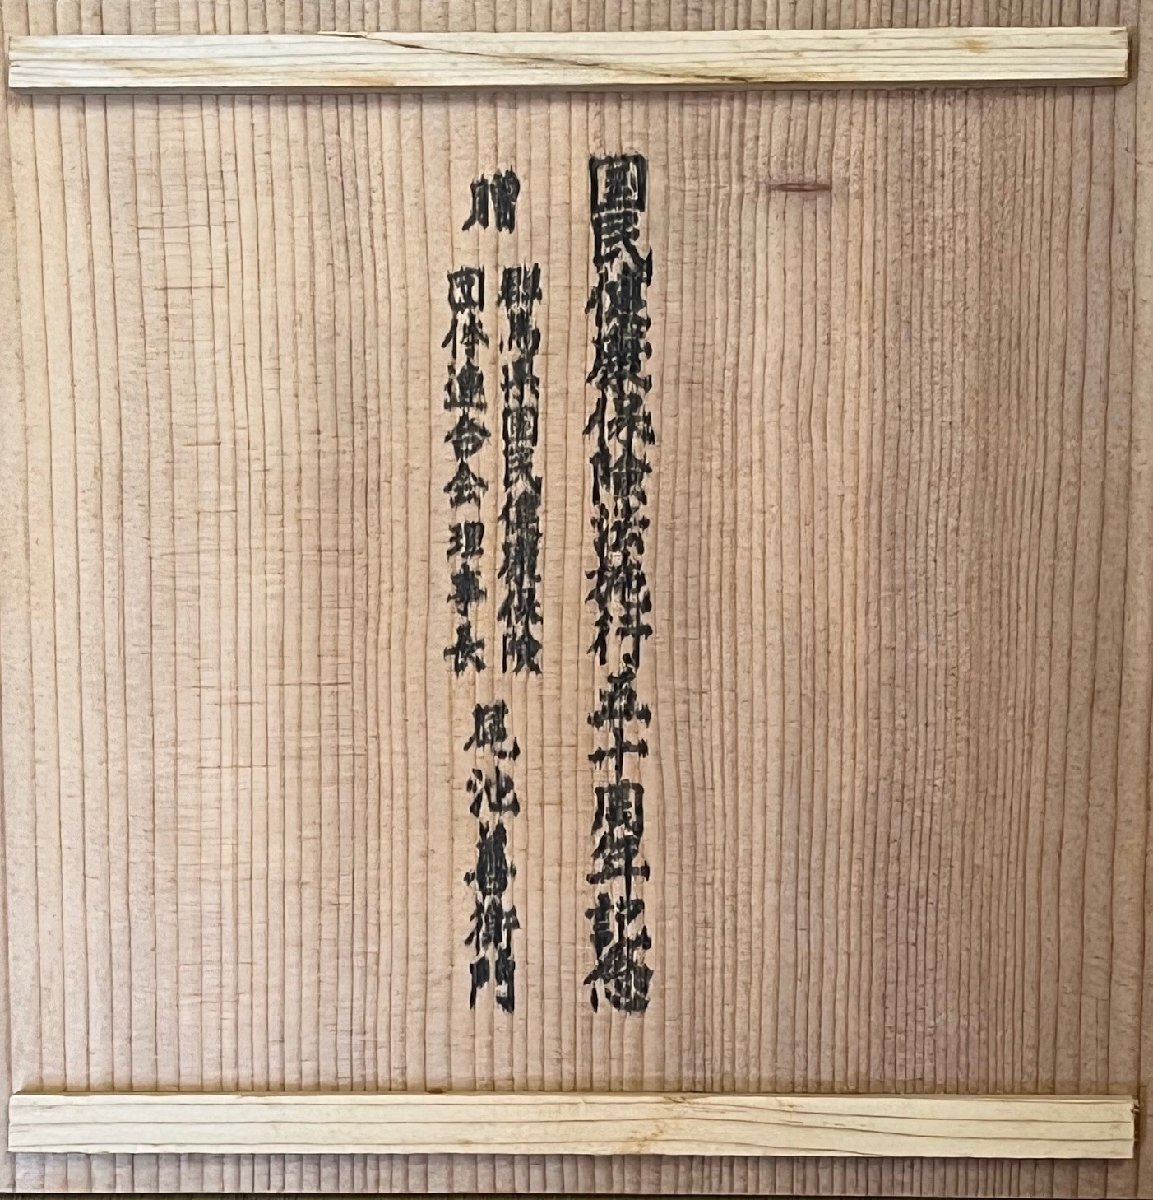 国民健康保険法施行五十周年記念
贈
群馬県国民健康保険
団体連合会理事長
尾池善衛門